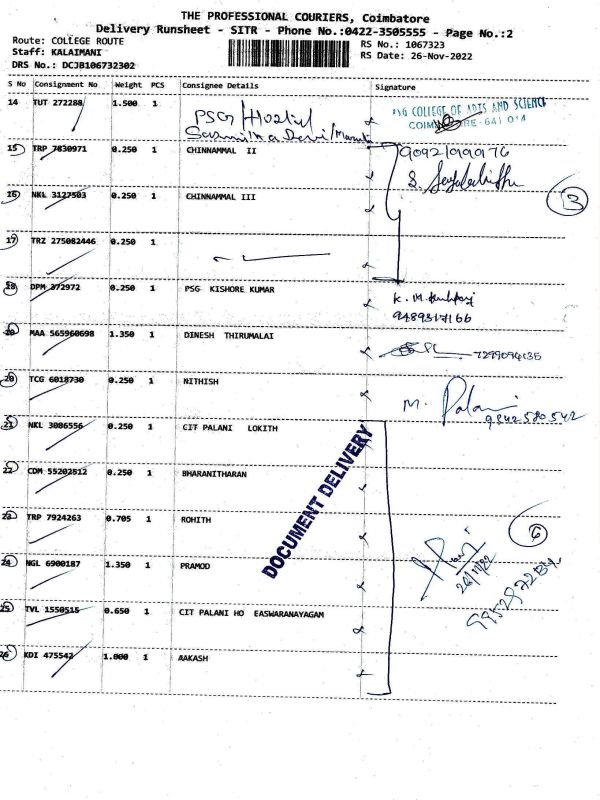 THE PROFESSIONAL COURIERS, Coimbatore
Delivery Runsheet - SITR - Phone No.:0422-3505555 - Page No.:2
Route: COLLEGE ROUTE
RS No.: 1067323
Staff: KALAIMANI
RS Date: 26-Nov-2022
DRS No.: DCJB106732302
S No Consignment No Weight PCS Consignee Details Signature
14 TUT 272288 1.500 1 PSG / Hostel
PSG COLLEGE OF ARTS AND SCIENCE
COIMBATORE-641 014
15 TRP 7830971 0.250 1 CHINNAMMAL II
16 NKL 3127503 0.250 1 CHINNAMMAL III
3
17 TRZ 275082446 0.250 1
18 DPM 372972 0.250 1 PSG KISHORE KUMAR
9489317166
19 MAA 565960698 1.350 1 DINESH THIRUMALAI
20 TCG 6018730 0.250 1 NITHISH
M. Palani
9842580542
21 NKL 3086556 0.250 1 CIT PALANI LOKITH
22 CDM 55202512 0.250 1 BHARANITHARAN
DOCUMENT DELIVERY
23 TRP 7924263 0.705 1 ROHITH
6
24 NGL 6900187 1.350 1 PRAMOD
26/11/22
25 TVL 1550515 0.650 1 CIT PALANI HO EASWARANAYAGAM
26 KDI 475542 1.000 1 AAKASH